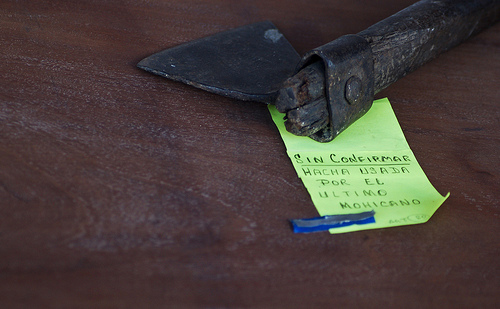 SIN CONFIRMAR
HACHA USADA
POR EL
ULTIMO
MOHICANO